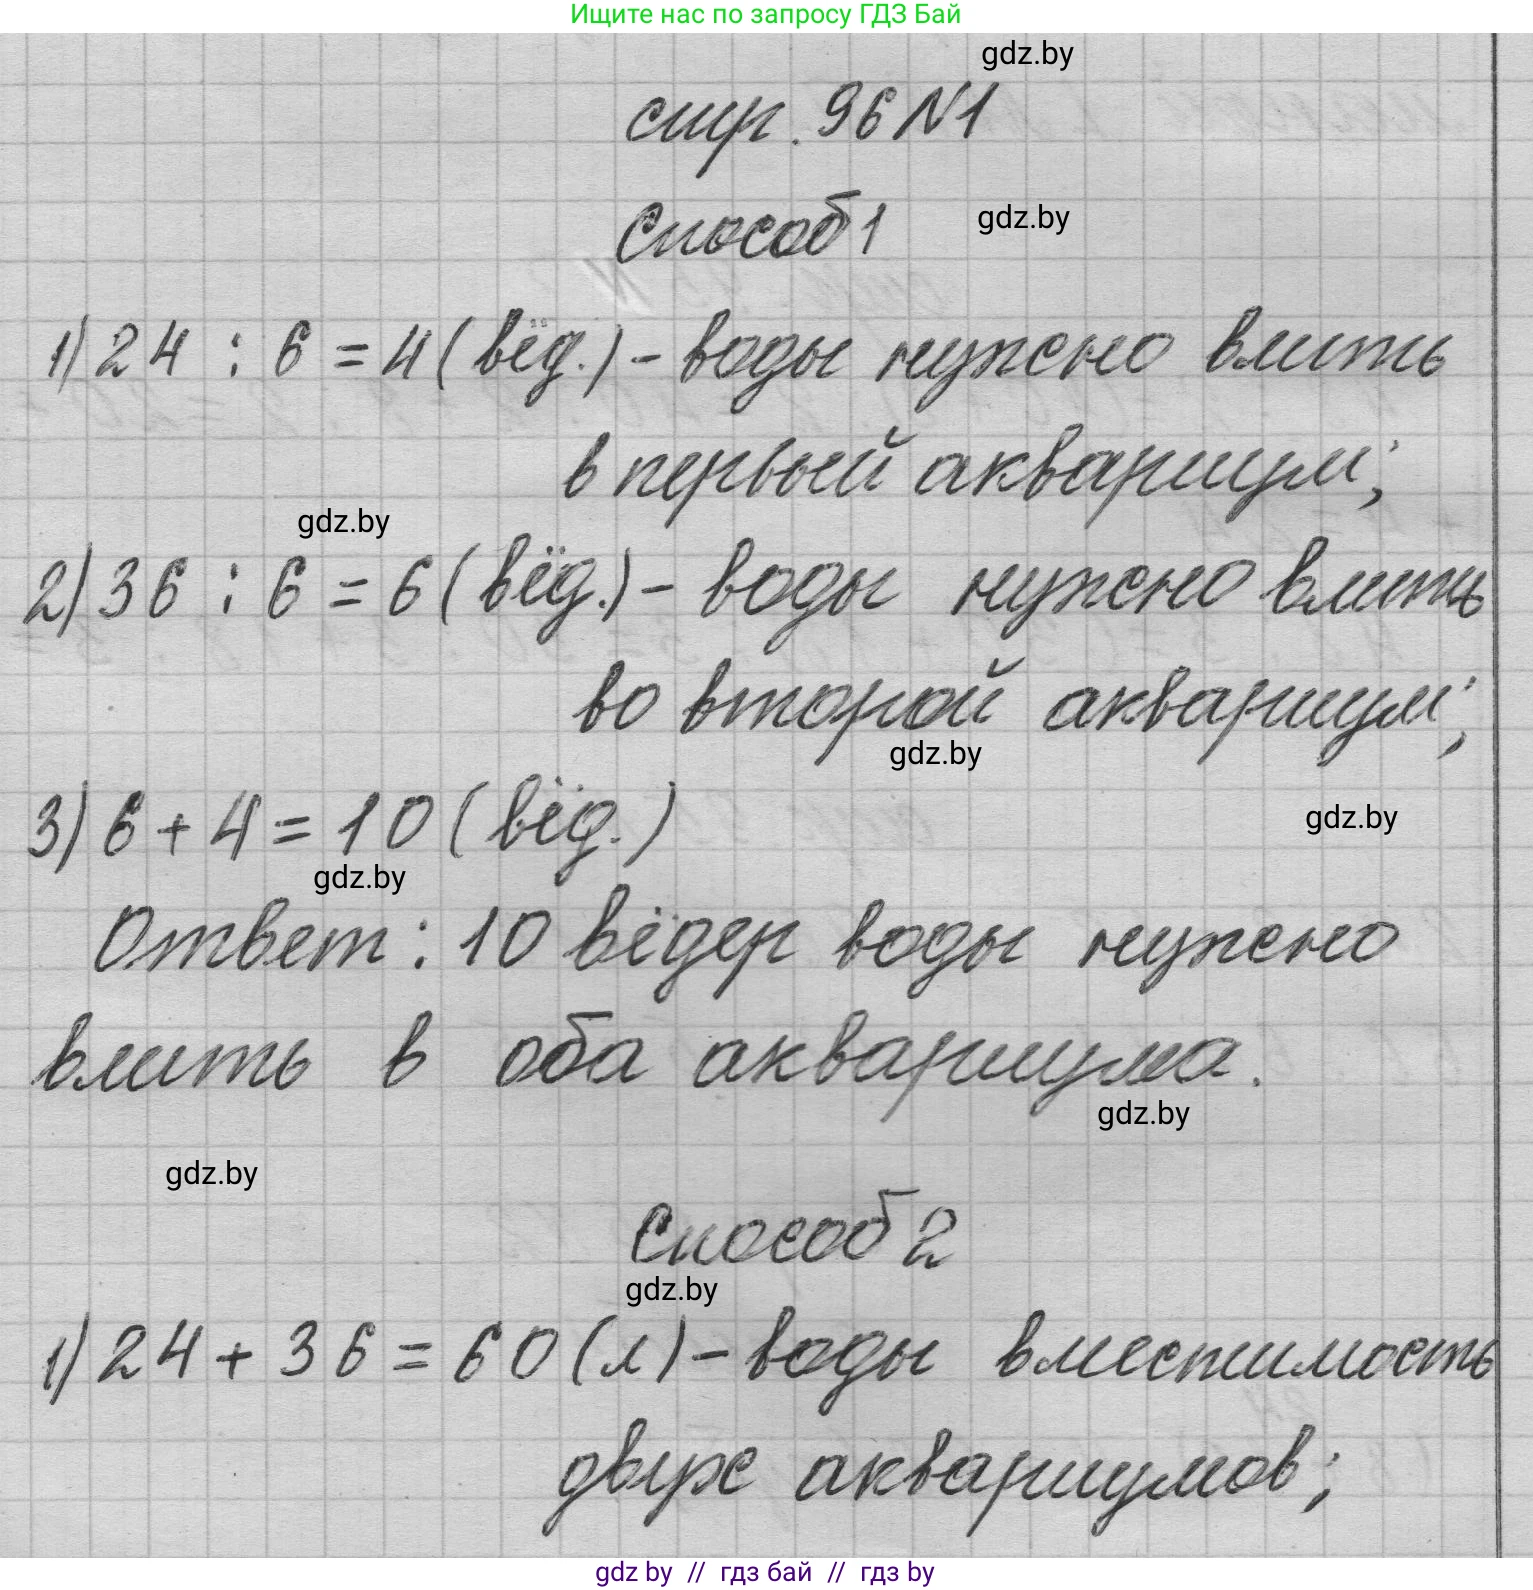 Ищите нас по запросу ГДЗ Бай
gdz.by
стр. 96 N1
Способ 1
gdz.by
1) 24 : 6 = 4 (вёд.) - воды нужно влить
в первый аквариум;
gdz.by
2) 36 : 6 = 6 (вёд.) - воды нужно влить
во второй аквариум;
gdz.by
3) 6 + 4 = 10 (вёд.)
gdz.by
gdz.by
Ответ: 10 вёдер воды нужно
влить в оба аквариума.
gdz.by
gdz.by
Способ 2
gdz.by
1) 24 + 36 = 60 (л) - воды вместимость
двух аквариумов;
gdz by // гдз бай // гдз by